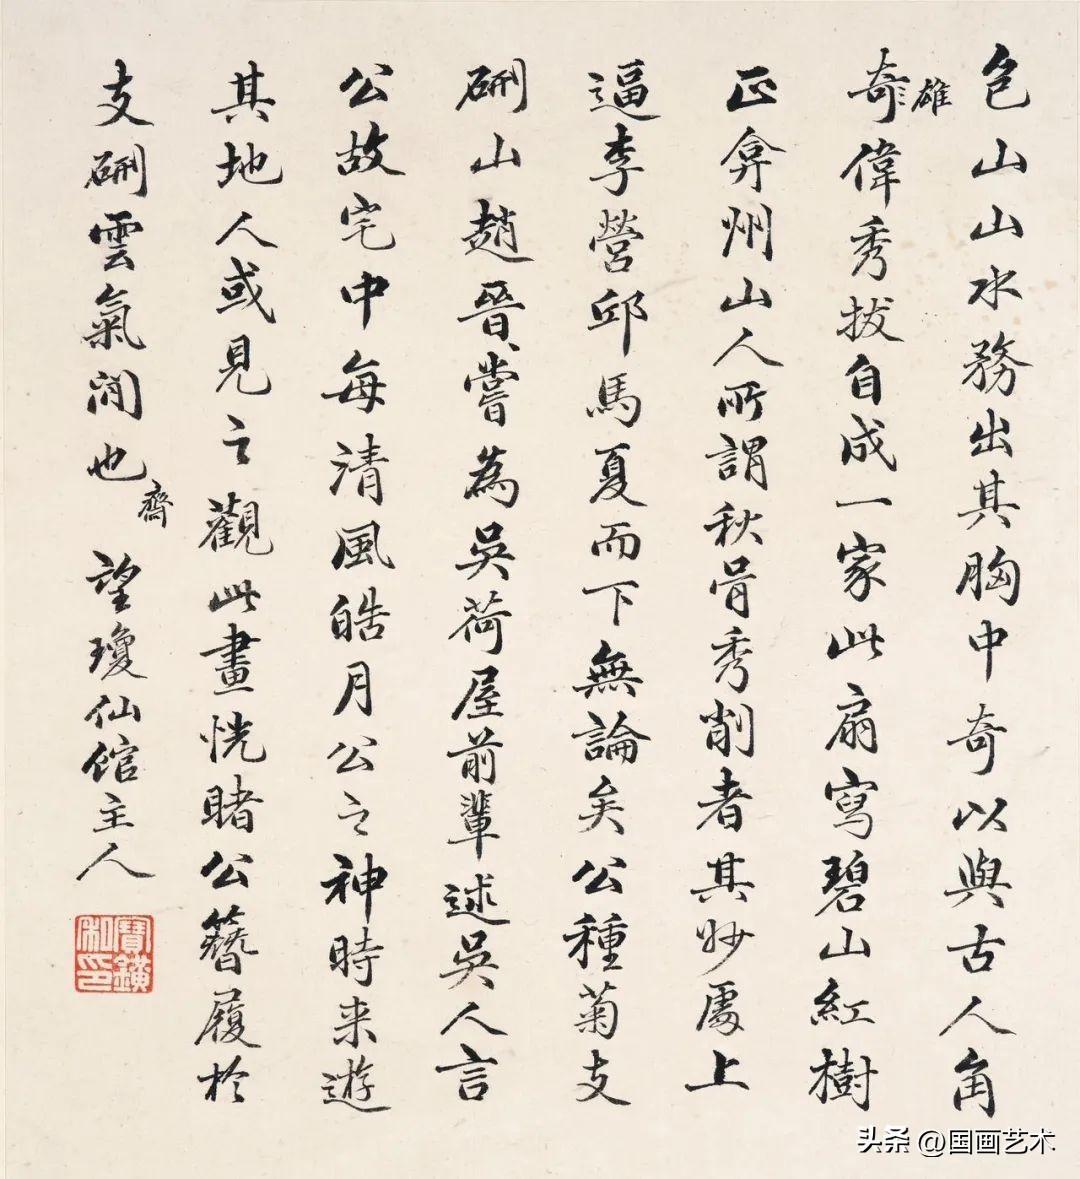 包山山水務出其胸中奇以與古人角
奇雄偉秀拔自成一家此扇寫碧山紅樹
正弇州山人所謂秋骨秀削者其妙處上
逼李營邱馬夏而下無論矣公種菊支
硎山趙晉嘗為吳荷屋前輩述吳人言
公故宅中每清風皓月公之神時来遊
其地人或見之觀此畫恍睹公簪履於
支硎雲氣間也 齋 望瓊仙館主人
寶鐄私印
头条 @国画艺术